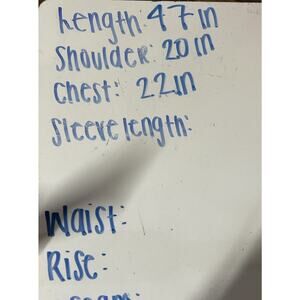 Length: 47 in
Shoulder: 20 in
Chest: 22in
Sleeve length:
Waist:
Rise: